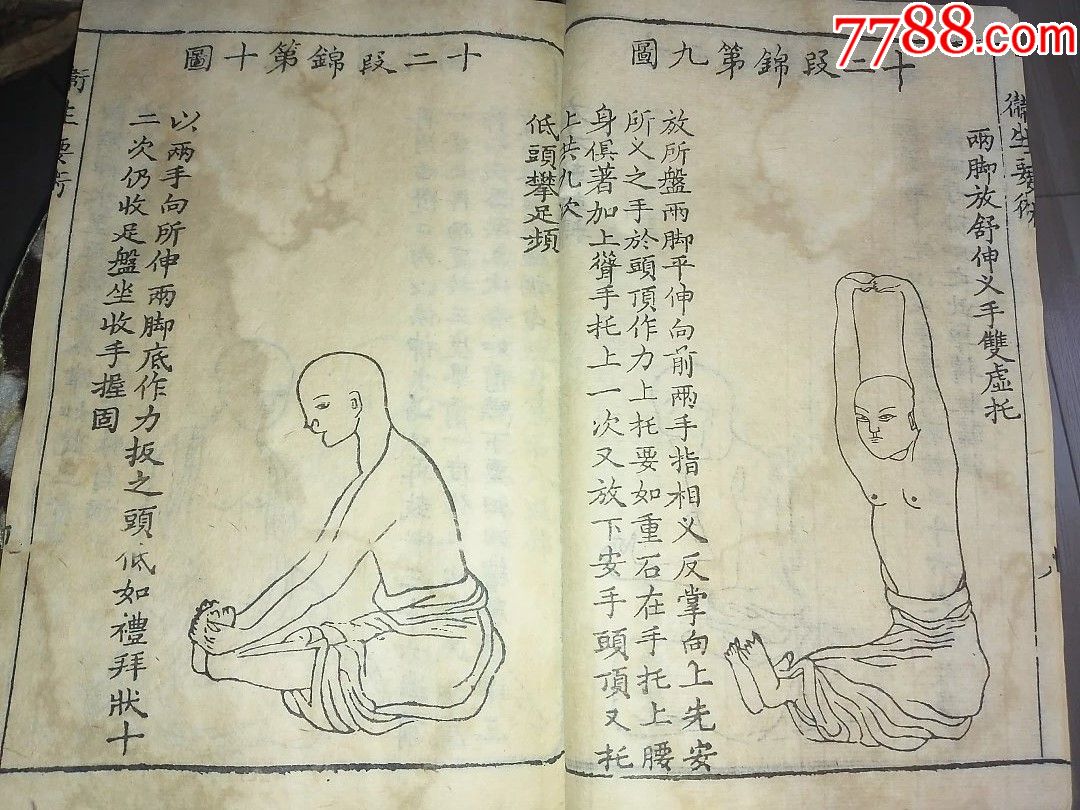 7788.com
衛生要術
十二段錦第九圖
兩脚放舒伸义手雙虛托
放所盤兩脚平伸向前兩手指相义反掌向上先安
所义之手於頭頂作力上托要如重石在手托上腰
身俱著加上聳手托上一次又放下安手頭頂又托
上共九次
低頭攀足頻
十二段錦第十圖
以兩手向所伸兩脚底作力扳之頭低如禮拜狀十
二次仍收足盤坐收手握固